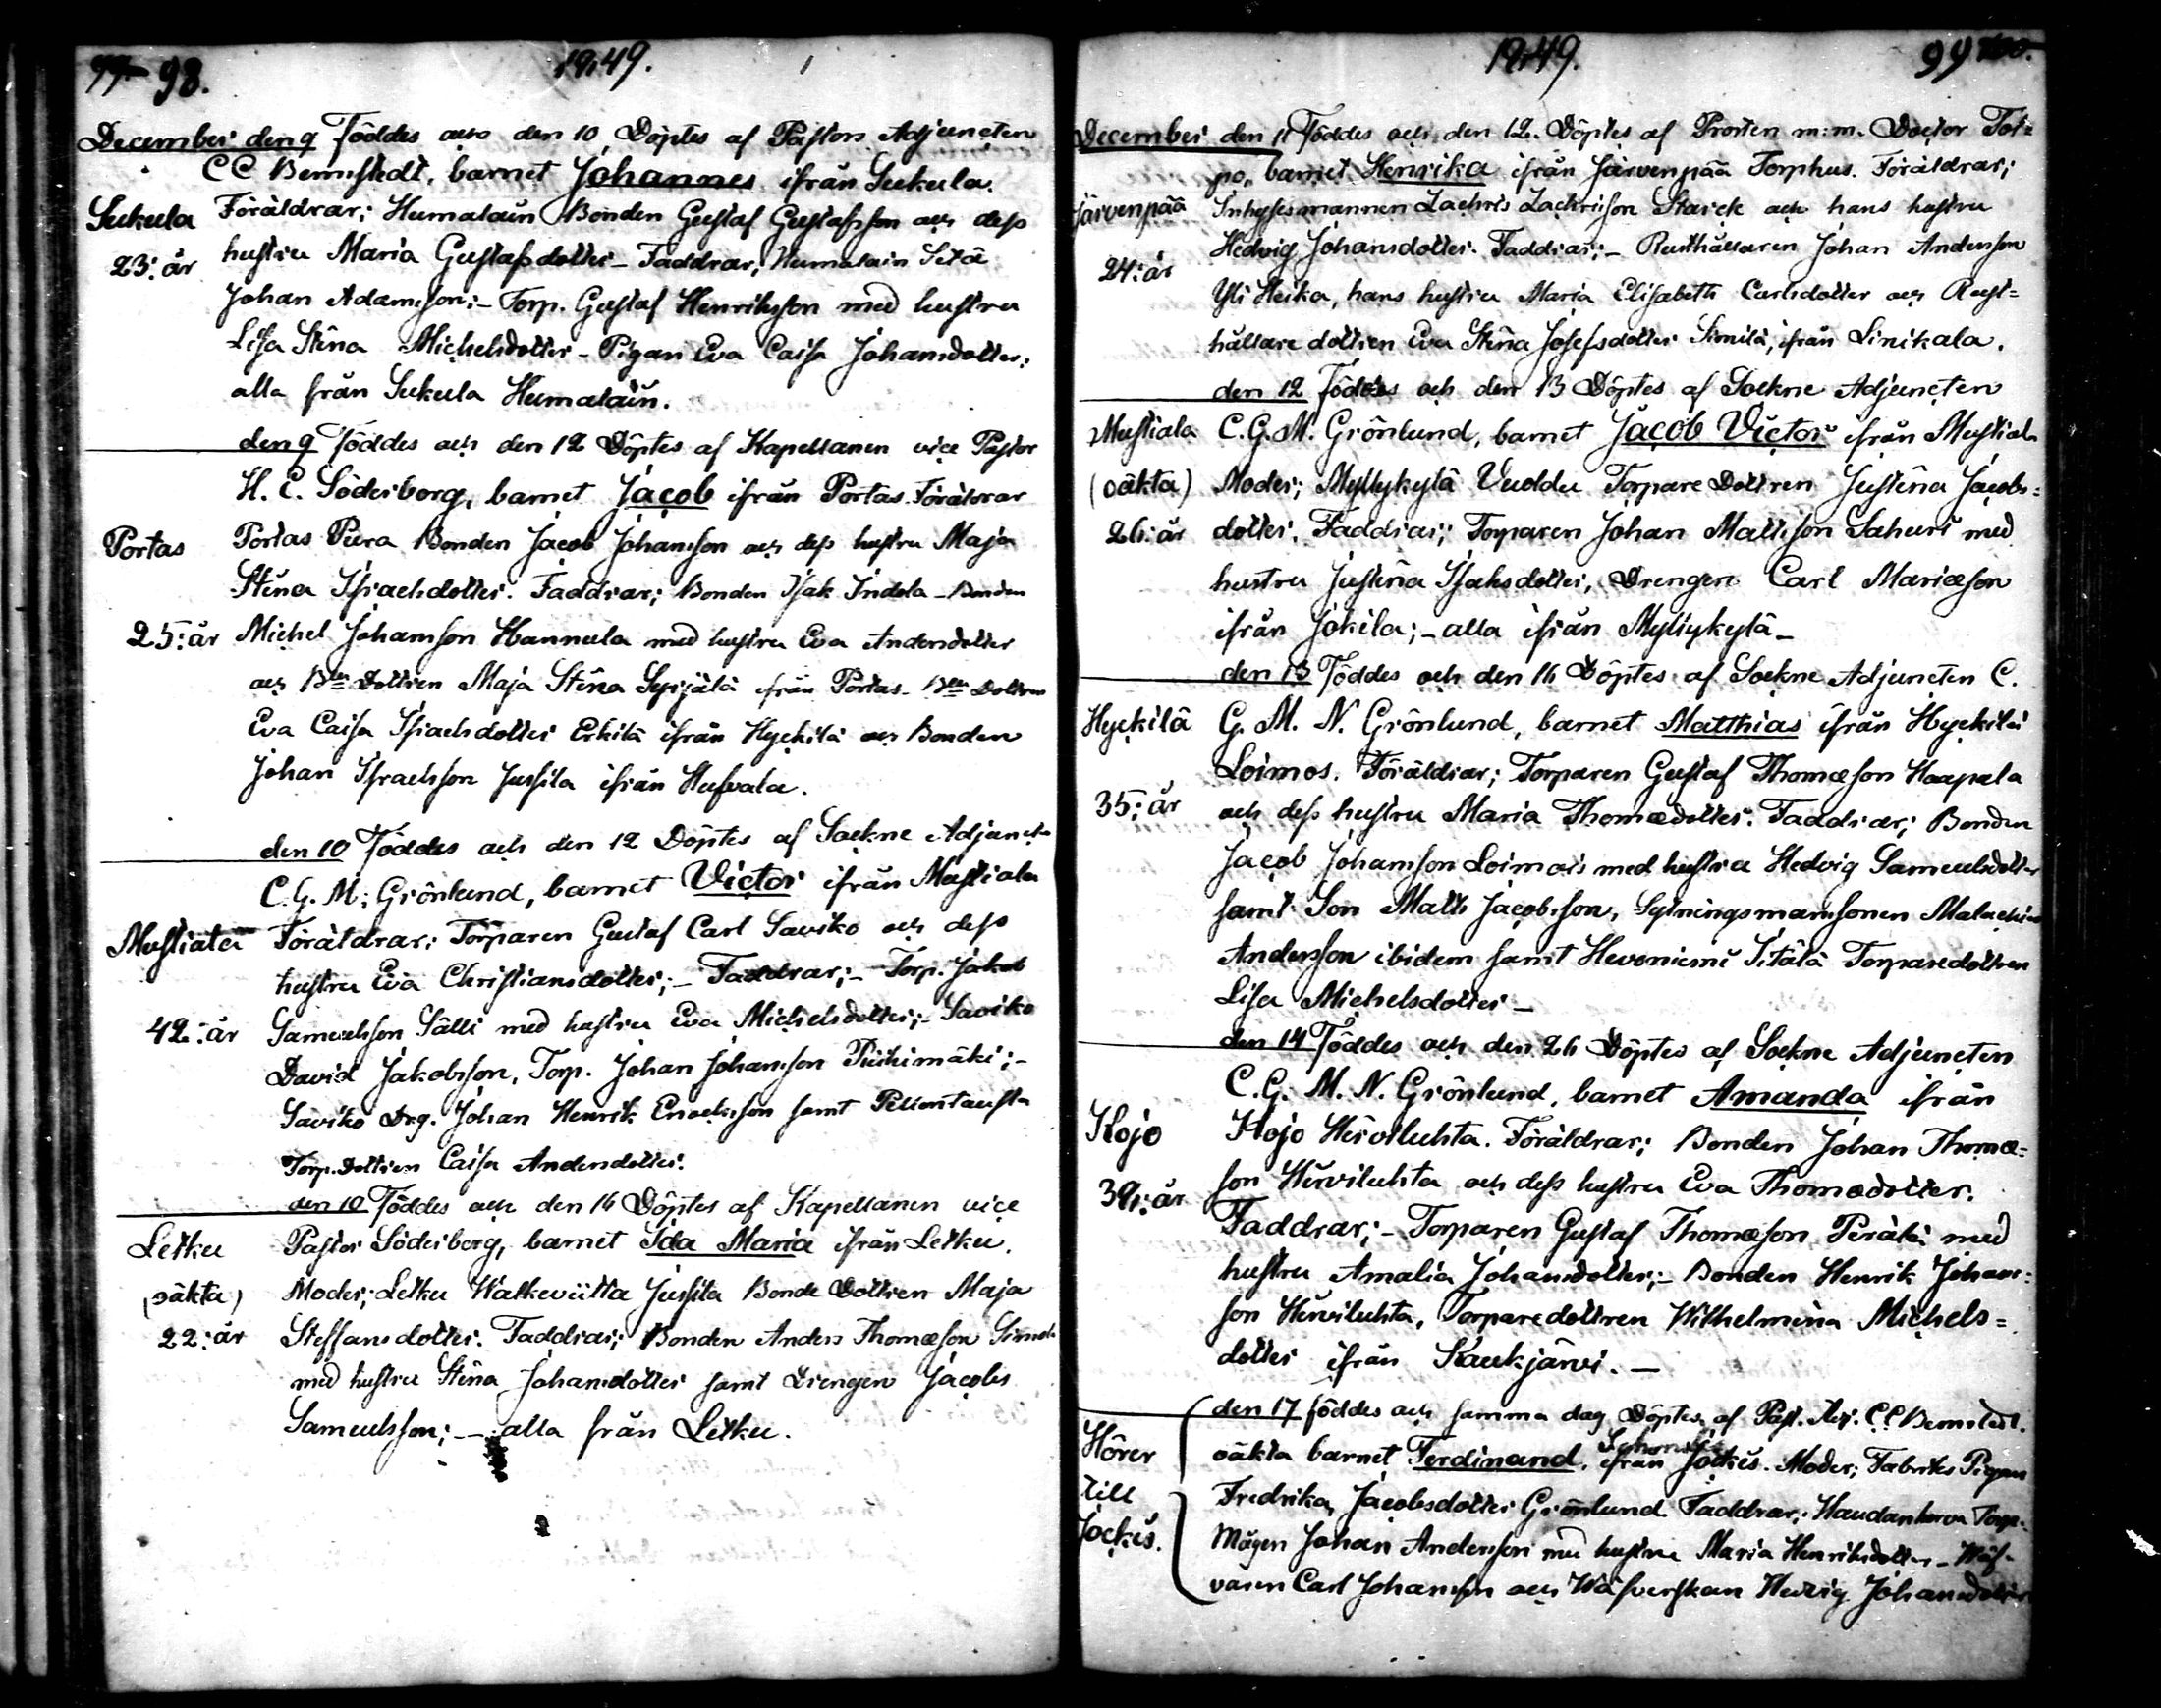 98.
1849.
December den 9 Föddes och den 10 Döptes af Pastors Adjuncten
C C Bernstedt, barnet Johannes ifrån Sukula.
Sukula
Föräldrar; Humalain Bonden Gustaf Gustafsson och dess
23: år
hustru Maria Gustafsdotter – Faddrar; Humalain
Johan Adamsson; – Torp. Gustaf Henriksson med hustru
Lisa Stina Michelsdotter – Pigan Eva Caisa Johansdotter;
alla från Sukula Humalain.
den 9 Föddes och den 12 Döptes af Kapellanen vice Pastor
H. E. Söderborg, barnet Jacob ifrån Portas. Föräldrar
Portas
Portas Pura Bonden Jacob Johansson och dess hustru Maja
Stina Israelsdotter. Faddrar; Bonden Isak Indola – Bonden
25: år
Michel Johansson Hannula med hustru Eva Andersdotter
och Bde Dottren Maja Stina Syrjälä ifrån Portas – Bde Dottren
Eva Caisa Israelsdotter Erkilä ifrån Hyckilä och Bonden
Johan Israelsson Jussila ifrån Hufvala.
den 10 Föddes och den 12 Döptes af Sockne Adjunct
C. G. M. Grönlund, barnet Victor ifrån Mustiala
Mustiala
Föräldrar; Torparen Gustaf Carl Saviko och dess
hustru Eva Christiansdotter; – Faddrar; – Torp. Jakob
42: år
Samuelsson Sälli med hustru Eva Michelsdotter; – Saviko
David Jakobsson, Torp. Johan Johansson Piikimäki; –
Saviko Drg. Johan Henrik Enocksson samt Pellontausta
Torp. Dottren Caisa Andersdotter.
den 10 Föddes och den 16 Döptes af Kapellanen vice
Letku
Pastor Söderborg, barnet Ida Maria ifrån Letku.
(oäkta)
Moder; Letku Walkeviitta Jussila Bonde Dottren Maja
22: år
Steffansdotter. Faddrar; Bonden Anders Thomæson
med hustru Stina Johansdotter samt Drengen Jacobs
Samuelsson; – alla från Letku.
1849.
99
December den 11 Föddes och den 12. Döptes af Prosten m:m. Doctor Tol=
po, barnet Henrika ifrån Järvenpää Torphus. Föräldrar;
Järvenpää
Inhysesmannen Zachris Zachrisson Starck och hans hustru
24: år
Hedvig Johansdotter. Faddrar; – Rusthållaren Johan Andersson
Yli Heika, hans hustru Maria Elisabeth Carlsdotter och Rust=
hållare dottren Eva Stina Josefsdotter Simila, ifrån Linikala.
den 12 Föddes och den 13 Döptes af Sockne Adjuncten
Mustiala
C. G. M. Grönlund, barnet Jacob Victor ifrån Mustiala
(oäkta)
Moder; Myllykylä Vuoddu Torpare Dottren Justina Jacobs=
26: år
dotter. Faddrar; Torparen Johan Mattsson Sahuri med
hustru Justina Isaksdotter, Drengen Carl Mariæson
ifrån Jokila; – alla ifrån Myllykylä –
den 13 Föddes och den 16 Döptes af Sockne Adjuncten C.
Hyckilä
G. M. N. Grönlund, barnet Matthias ifrån Hyckilä
Loimos. Föräldrar; Torparen Gustaf Thomæson Haapala
35: år
och dess hustru Maria Thomædotter. Faddrar; Bonden
Jacob Johansson Loimois med hustru Hedvig Samuelsdotter
samt Son Matts Jacobsson, Sytningsmanssonen Malachias
Andersson ibidem samt Hevoniemi Sitälä Torparedottren
Lisa Michelsdotter –
den 14 Föddes och den 26 Döptes af Sockne Adjuncten
C. G. M. N. Grönlund, barnet Amanda ifrån
Kojo
Kojo Hirviluhta. Föräldrar; Bonden Johan Thomæ=
39: år
son Hirviluhta och dess hustru Eva Thomædotter.
Faddrar; – Torparen Gustaf Thomæson Perälä med
hustru Amalia Johansdotter; – Bonden Henrik Johans=
son Hirviluhta, Torparedottren Wilhelmina Michels=
dotter ifrån Kaukjärvi. –
den 17 föddes och samma dag Döptes af Past. Adj. C C Bernstedt.
Hörer
oäkta barnet Ferdinand, ifrån Jockis. Moder; Fabriks Pigan
till
Fredrika Jacobsdotter Grönlund. Faddrar; Haudankorva Torp.
Jockis.
Mågen Johan Andersson med hustru Maria Henriksdotter – Wäf-
varen Carl Johansson och Wäfverskan Hedvig Johansdotter